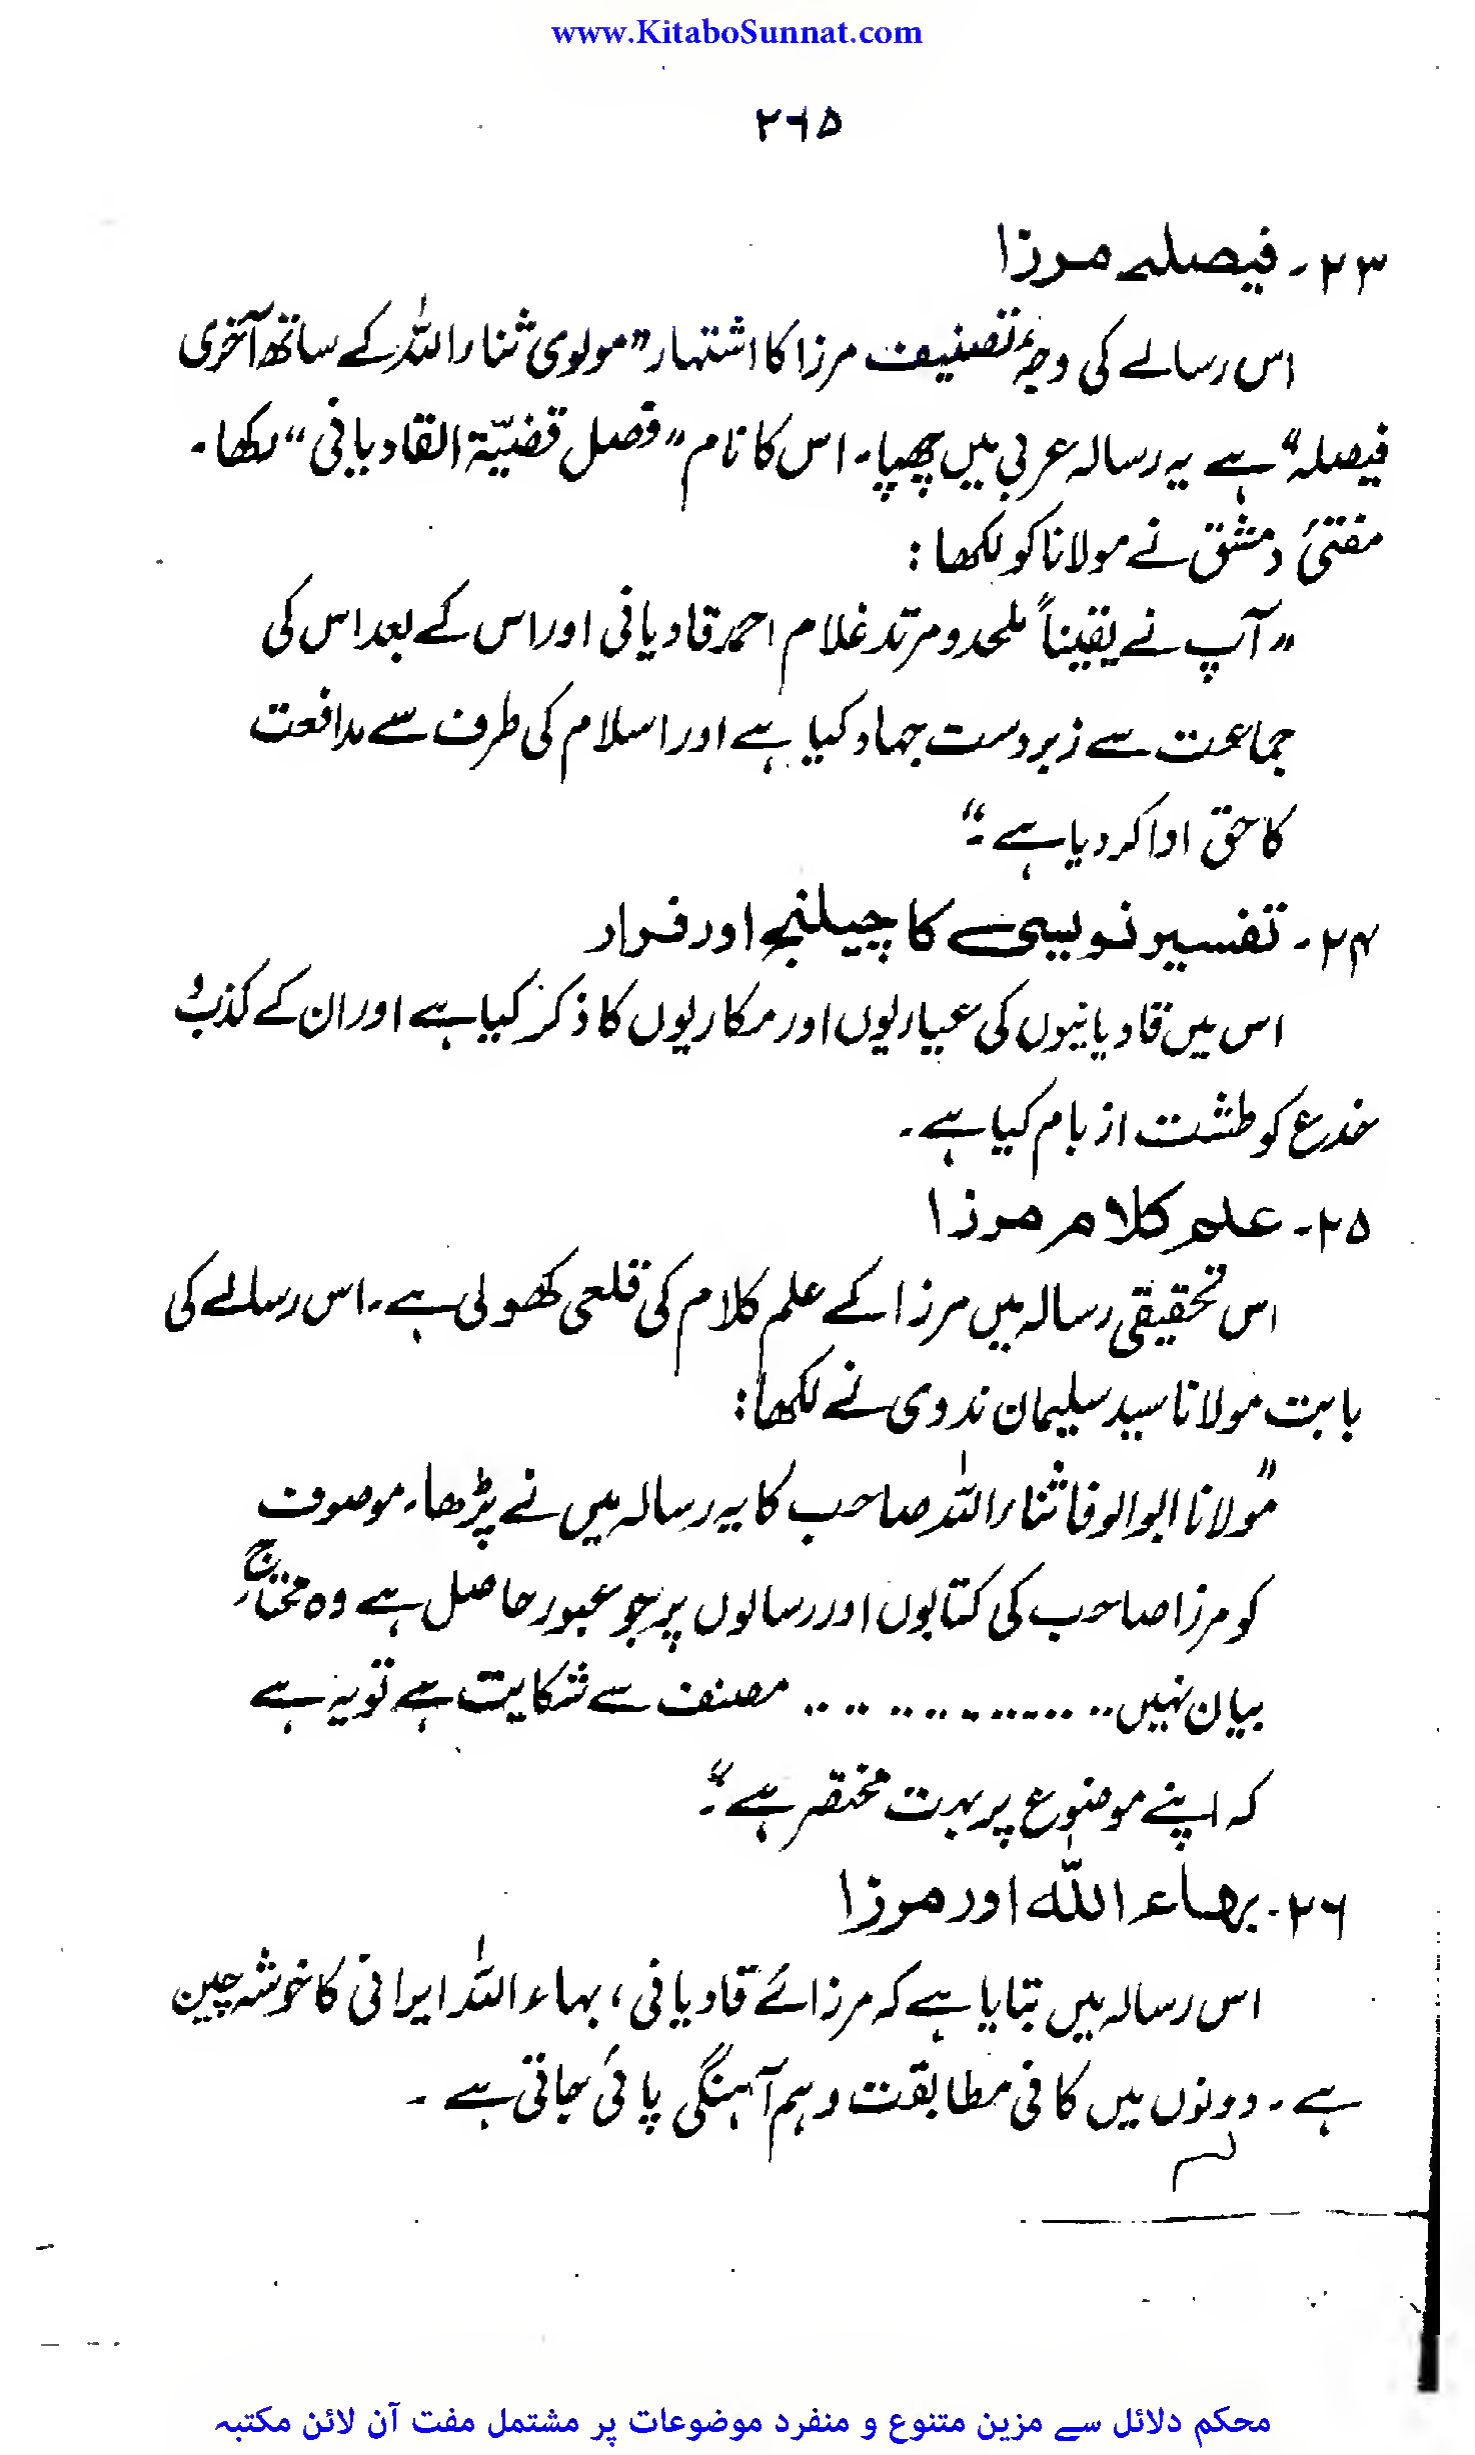 www.KitaboSunnat.com
۲۶۵
۲۳۔ فیصلہ مرزا
اس رسالے کی وجہٴ تصنیف مرزا کا اشتہار ”مولوی ثناء اللہ کے ساتھ آخری
فیصلہ“ ہے یہ رسالہ عربی میں چھپا۔ اس کا نام ”فصل قضیّۃ القادیانی“ رکھا۔
مفتیٔ دمشق نے مولانا کو لکھا :
”آپ نے یقیناً ملحد و مرتد غلام احمد قادیانی اور اس کے بعد اس کی
جماعت سے زبردست جہاد کیا ہے اور اسلام کی طرف سے مدافعت
کا حق ادا کر دیا ہے ۔“
۲۴۔ تفسیر نویسی کا چیلنج اور فرار
اس میں قادیانیوں کی عیاریوں اور مکاریوں کا ذکر کیا ہے اور ان کے کذب و
خدع کو طشت از بام کیا ہے ۔
۲۵۔ علم کلام مرزا
اس تحقیقی رسالہ میں مرزا کے علم کلام کی قلعی کھولی ہے۔ اس رسالے کی
بابت مولانا سید سلیمان ندوی نے لکھا :
”مولانا ابوالوفا ثناء اللہ صاحب کا یہ رسالہ میں نے پڑھا۔ موصوف
کو مرزا صاحب کی کتابوں اور رسالوں پر جو عبور حاصل ہے وہ محتاج
بیان نہیں .................. مصنف سے شکایت ہے تو یہ ہے
کہ اپنے موضوع پر بہت مختصر ہے ۔“
۲۶۔ بھاء اللہ اور مرزا
اس رسالہ میں بتایا ہے کہ مرزائے قادیانی ، بہاء اللہ ایرانی کا خوشہ چین
ہے ۔ دونوں میں کافی مطابقت و ہم آہنگی پائی جاتی ہے ۔
محکم دلائل سے مزین متنوع و منفرد موضوعات پر مشتمل مفت آن لائن مکتبہ